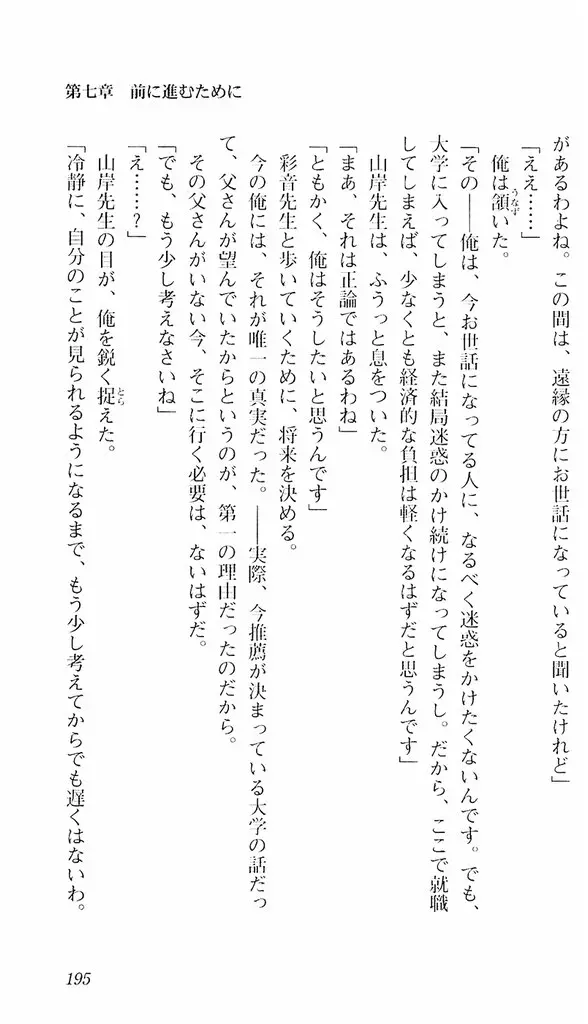 第七章　前に進むために
があるわよね。この間は、遠縁の方にお世話になっていると聞いたけれど」
「ええ……」
俺は頷いた。
うなず
「その――俺は、今お世話になってる人に、なるべく迷惑をかけたくないんです。でも、
大学に入ってしまうと、また結局迷惑のかけ続けになってしまうし。だから、ここで就職
してしまえば、少なくとも経済的な負担は軽くなるはずだと思うんです」
山岸先生は、ふうっと息をついた。
「まあ、それは正論ではあるわね」
「ともかく、俺はそうしたいと思うんです」
彩音先生と歩いていくために、将来を決める。
今の俺には、それが唯一の真実だった。――実際、今推薦が決まっている大学の話だっ
て、父さんが望んでいたからというのが、第一の理由だったのだから。
その父さんがいない今、そこに行く必要は、ないはずだ。
「でも、もう少し考えなさいね」
「え……?」
山岸先生の目が、俺を鋭く捉えた。
とら
「冷静に、自分のことが見られるようになるまで、もう少し考えてからでも遅くはないわ。
195